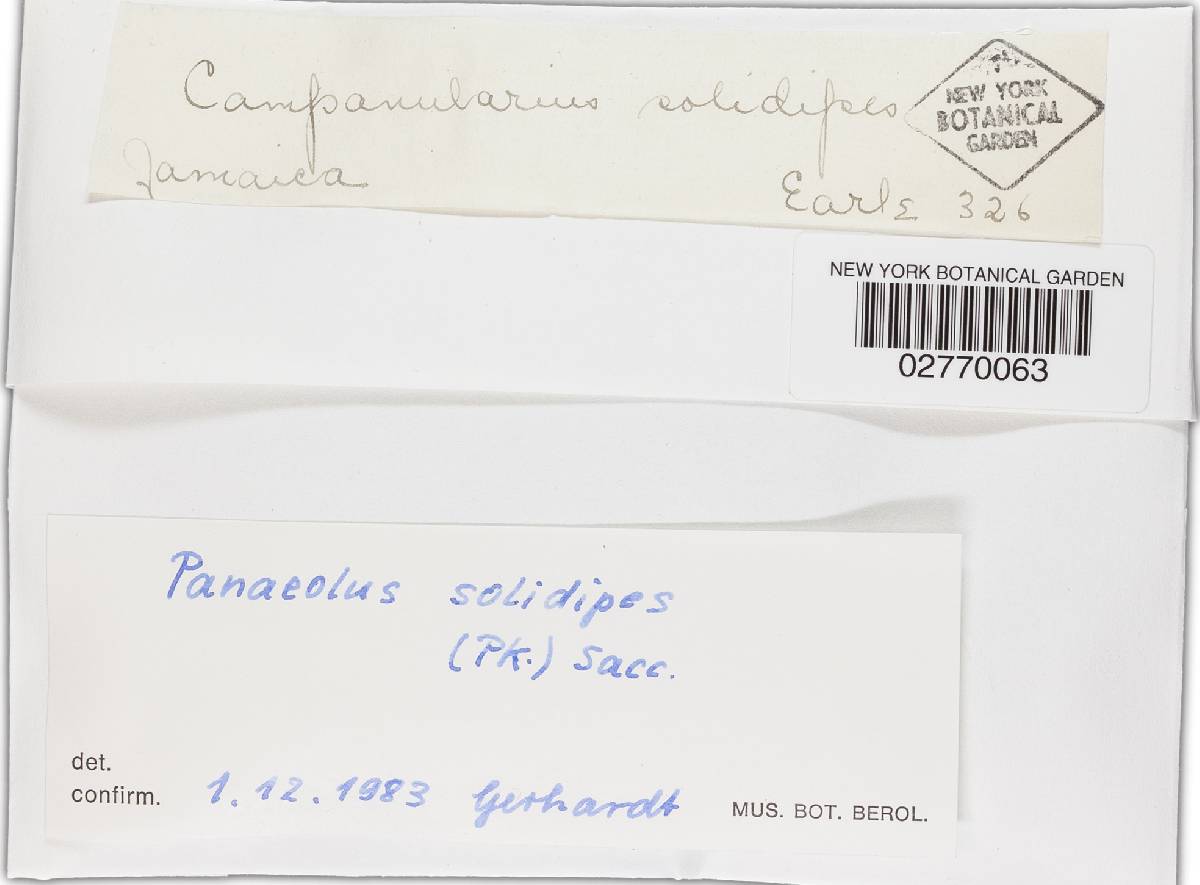 Campanularius solidipes
Jamaica
Earle 326
NEW YORK
BOTANICAL
GARDEN
NEW YORK BOTANICAL GARDEN
02770063
Panaeolus solidipes
(Pk.) Sacc.
det.
confirm. 1.12.1983 Gerhardt MUS. BOT. BEROL.